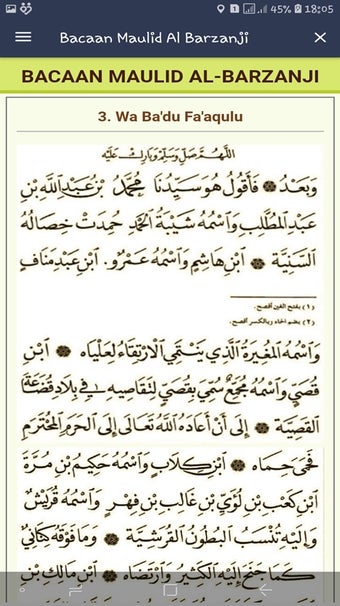 45% 18:05
Bacaan Maulid Al Barzanji
BACAAN MAULID AL-BARZANJI
3. Wa Ba'du Fa'aqulu
اَللّٰهُمَّ صَلِّ وَسَلِّمْ وَبَارِكْ عَلَيْهِ
وَبَعْدُ ۞ فَأَقُولُ هُوَ سَيِّدُنَا مُحَمَّدُ بْنُ عَبْدِ اللّٰهِ بْنِ
عَبْدِ الْمُطَّلِبِ وَاسْمُهُ شَيْبَةُ الْحَمْدِ حُمِدَتْ خِصَالُهُ
السَّنِيَّةُ ۞ ابْنِ هَاشِمٍ وَاسْمُهُ عَمْرُو. ابْنِ عَبْدِ مَنَافٍ
(١) بفتح الغين أفصح.
(٢) بضم الحاء وبالكسر أفصح.
وَاسْمُهُ الْمُغِيرَةُ الَّذِي يَنْتَمِي الْارْتِقَاءُ لِعَلْيَاهُ ۞ ابْنِ
قُصَيٍّ وَاسْمُهُ مُجَمِّعٌ سُمِّيَ بِقُصَيٍّ لِتَقَاصِيهِ فِي بِلَادِ قُضَاعَةَ
الْقَصِيَّةِ ۞ إِلَى أَنْ أَعَادَهُ اللّٰهُ تَعَالَى إِلَى الْحَرَمِ الْمُحْتَرَمِ
فَحَمَى حِمَاهُ ۞ ابْنِ كِلَابٍ وَاسْمُهُ حَكِيمُ بْنِ مُرَّةَ
ابْنِ كَعْبِ بْنِ لُؤَيِّ بْنِ غَالِبِ بْنِ فِهْرٍ وَاسْمُهُ قُرَيْشٌ
وَإِلَيْهِ تُنْسَبُ الْبُطُونُ الْقُرَشِيَّةُ ۞ وَمَا فَوْقَهُ كِنَانِيٌّ
كَمَا جَنَحَ إِلَيْهِ الْكَثِيرُ وَارْتَضَاهُ ۞ ابْنِ مَالِكِ بْنِ